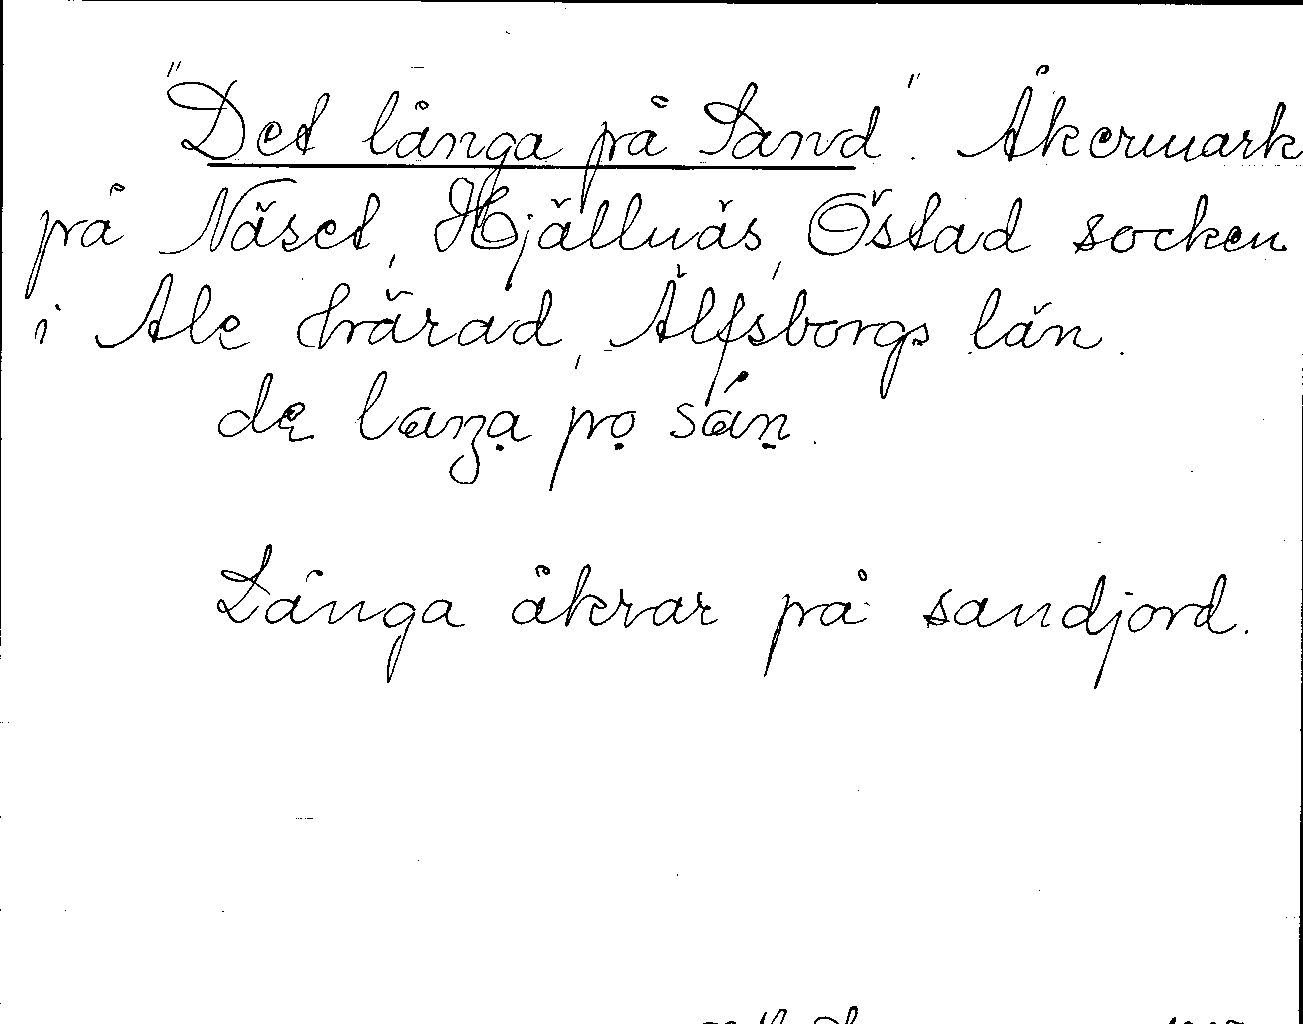 "Det långa på Sand". Åkermark
på Näset, Hjällnäs, Östad socken
i Ale härad, Älfsborgs län.
dę laŋa̤ po̤ sán̤.
Långa åkrar på sandjord.